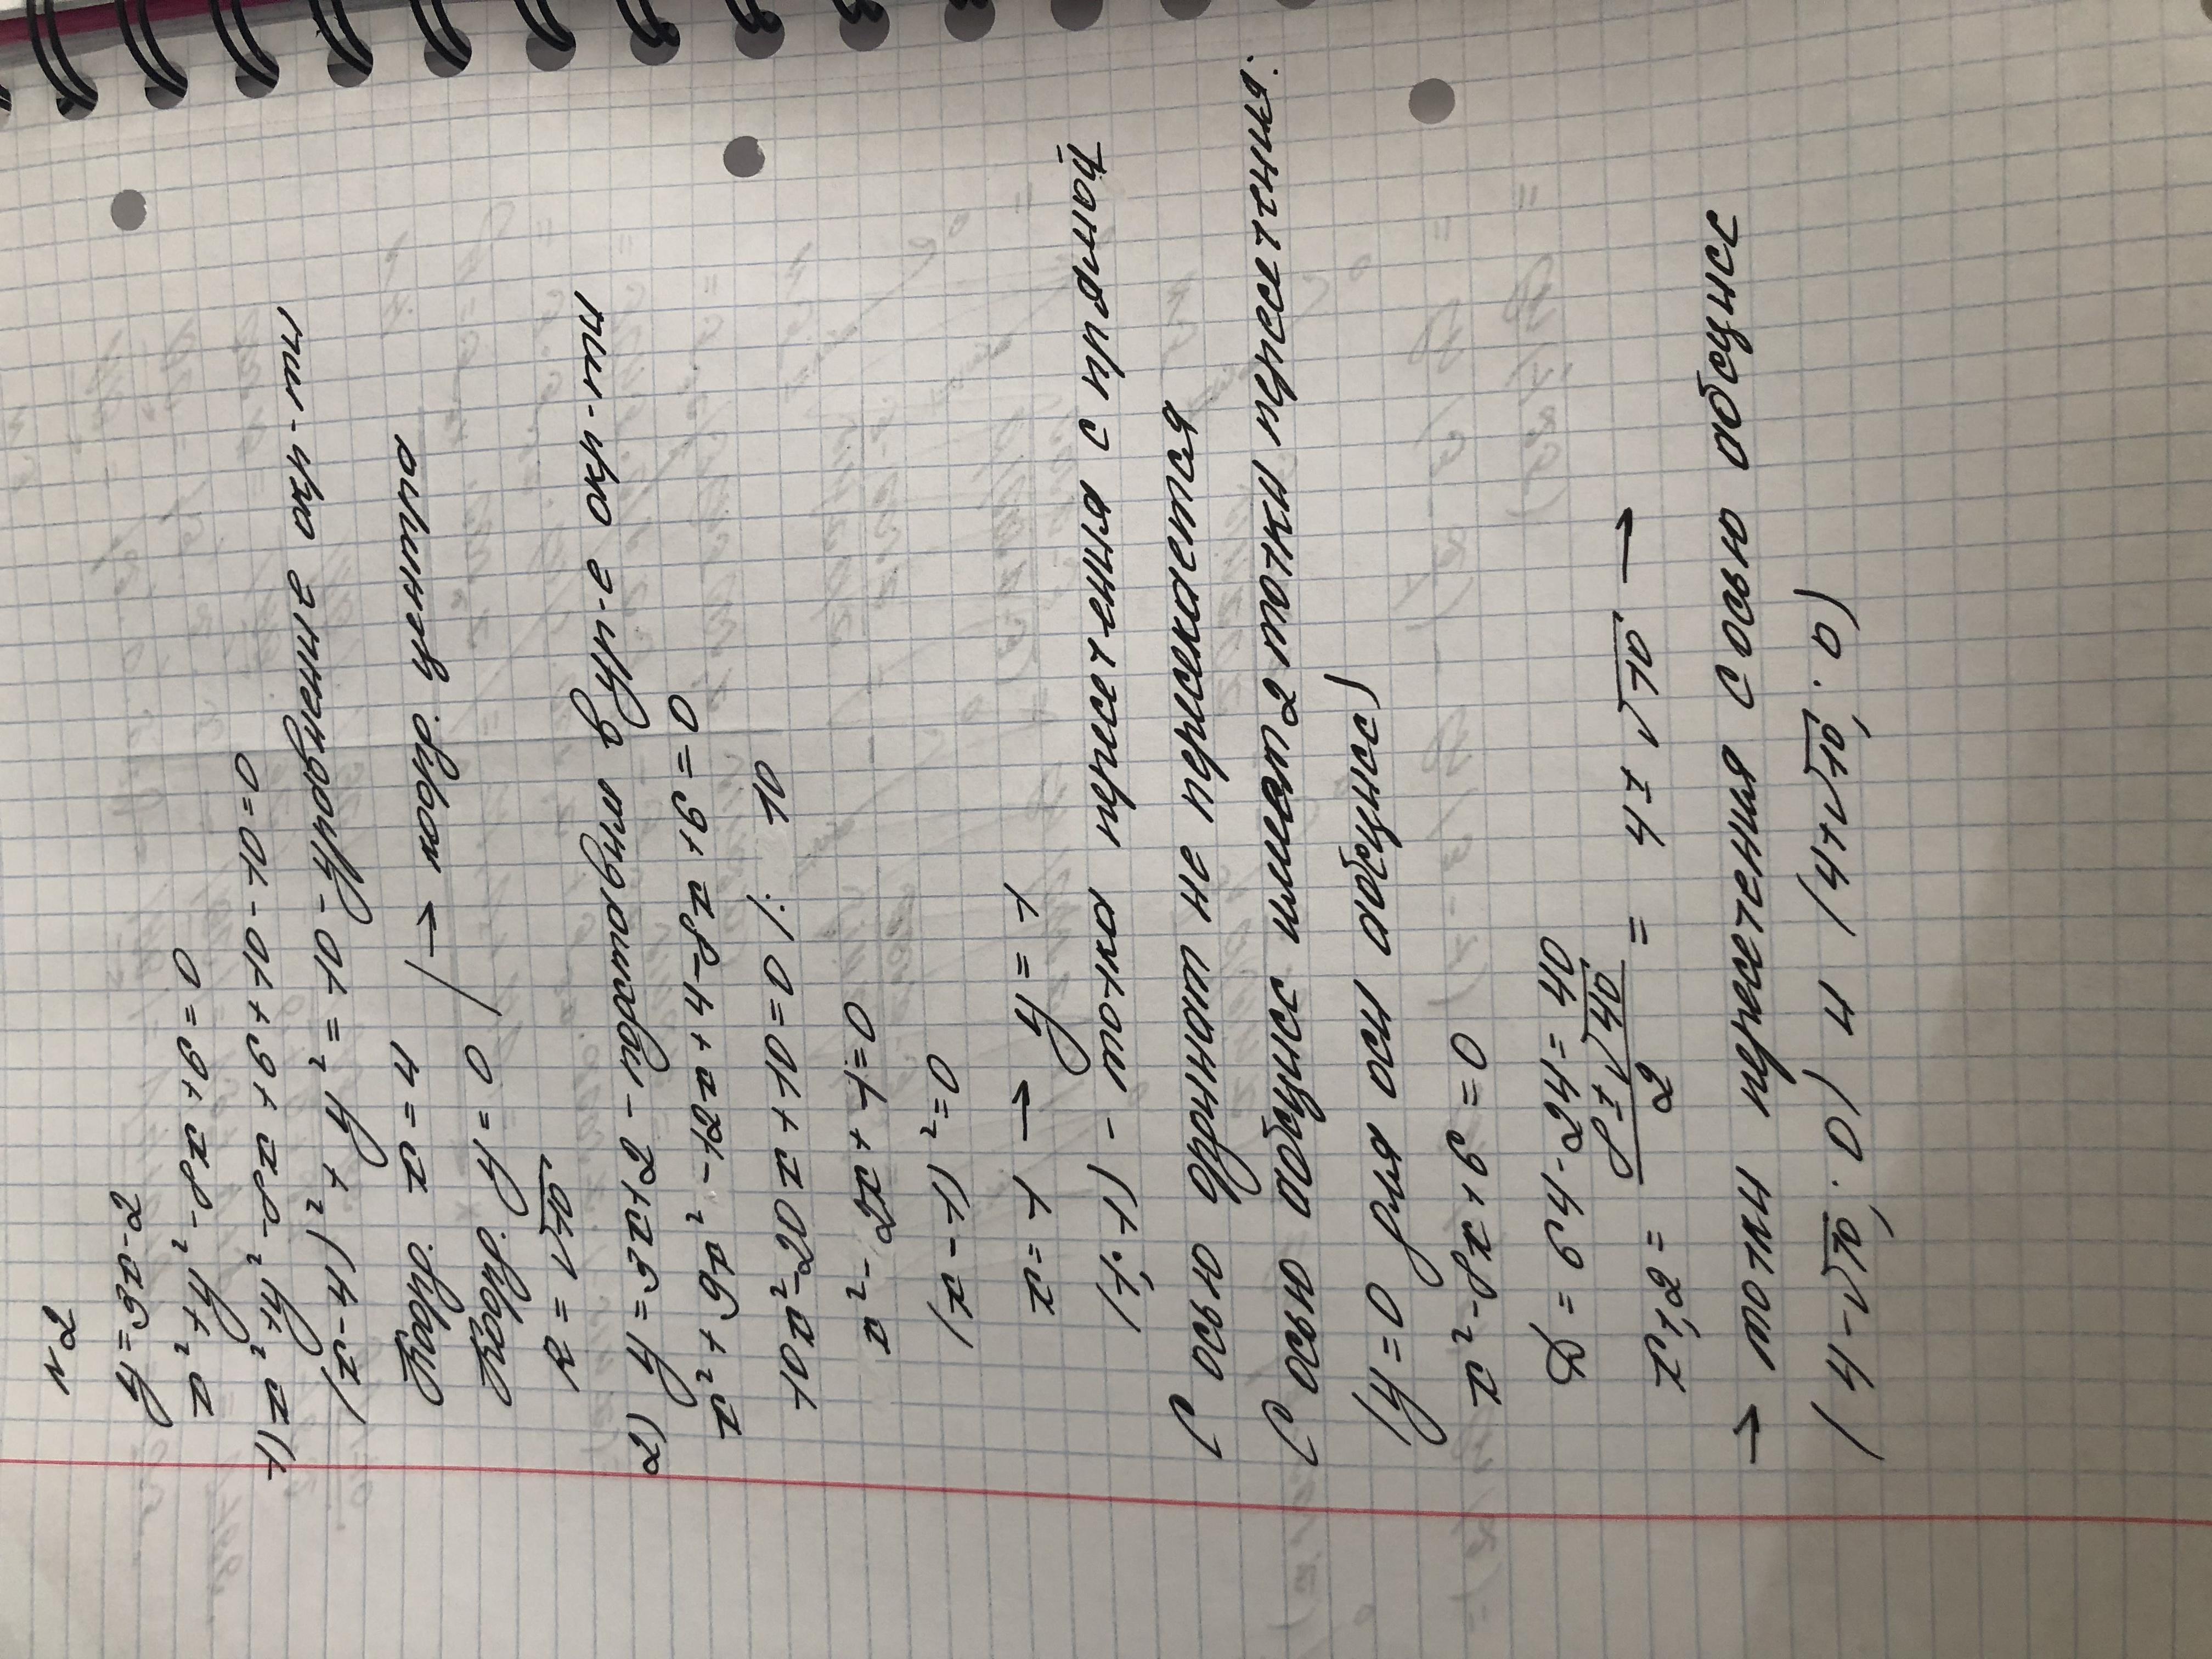 N2
y=3x-2
x²+y²-8x+6=0
1) x²+y²-8x+6+10-10=0
(x-4)²+y²=10 - уравнение окр-ти
Коорд. x=4 → коорд. центра
Коорд. y=0
R=√10
2) y=3x+2 - подставим в ур-е окр-ти
x²+9x²-12x+4-8x+6=0
10x²-20x+10=0 |: 10
x²-2x+1=0
(x-1)²=0
x=1 → y=1
(1; 1) - точка пересечения с прямой
С осью ординат не пересекается
С осью абсцисс имеет 2 точки пересечения:
(y=0 для оси абсцисс)
x²-8x+6=0
D=64-24=40
x1,2= 8±√40/2 = 4±√10 →
→ точки пересечения с осью абсцисс
(4-√10; 0) и (4+√10; 0)